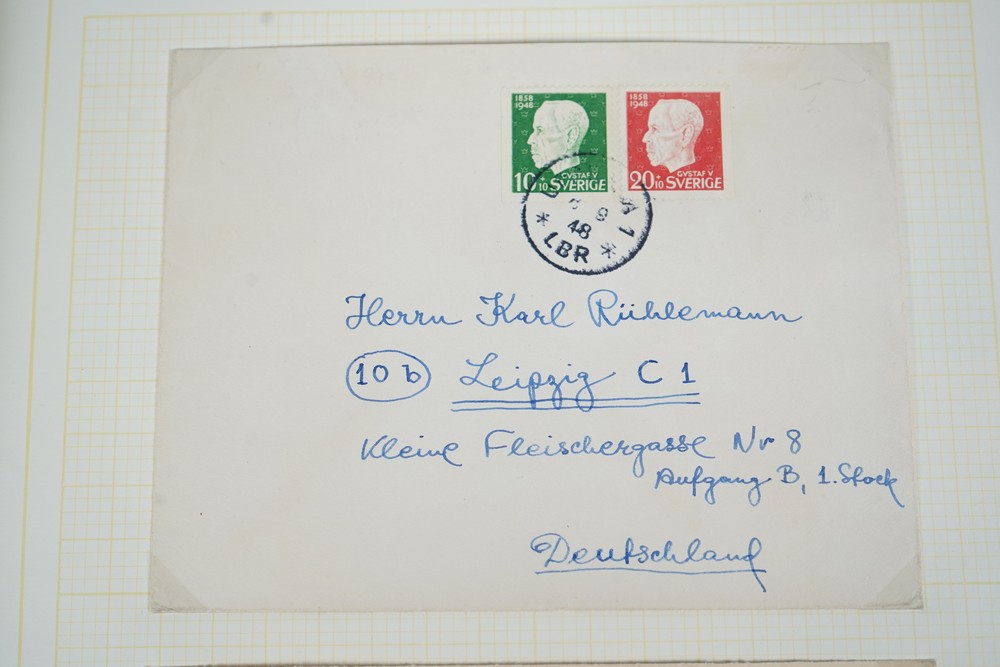 1858
1948
GVSTAF V
10+10 SVERIGE
1858
1948
GVSTAF V
20+10 SVERIGE
A 1
9
48
* LBR *
Herrn Karl Rühlemann
10 b Leipzig C 1
Kleine Fleischergasse Nr 8
Aufgang B, 1. Stock
Deutschland